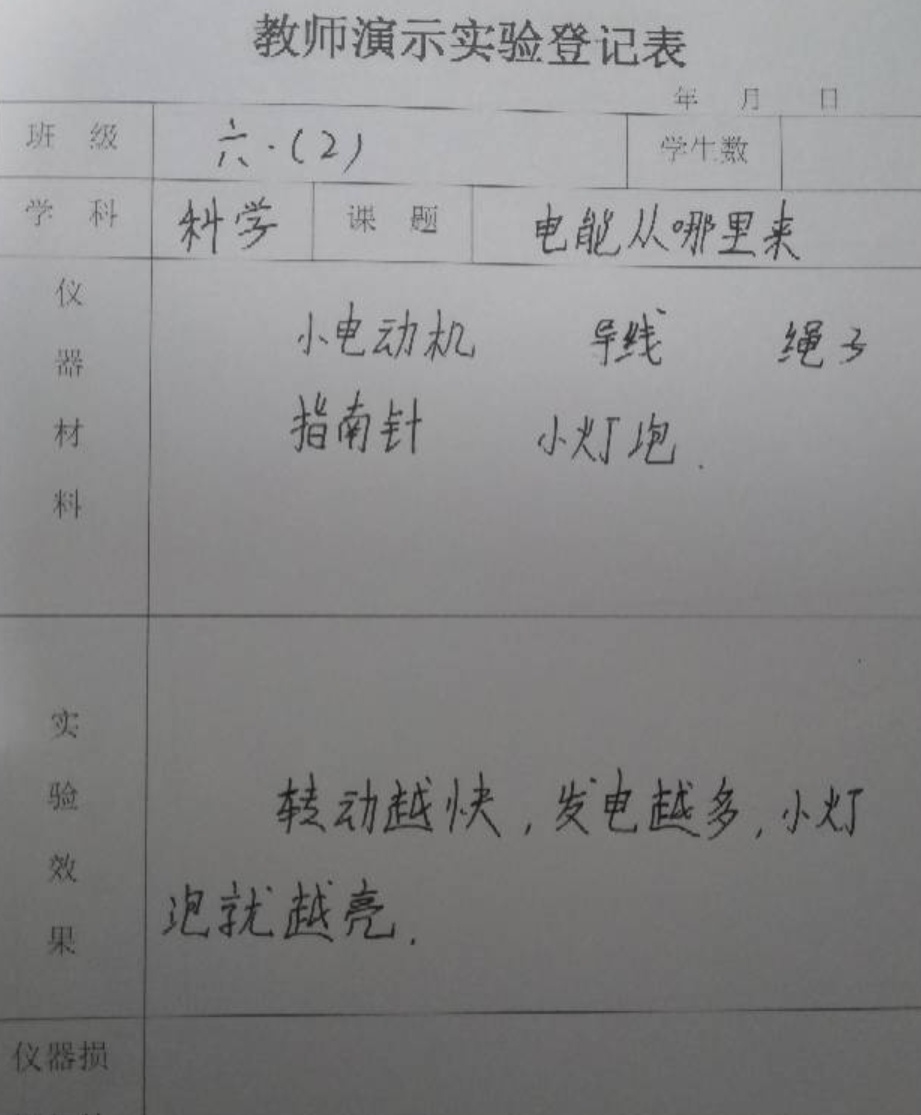 教师演示实验登记表
年 月 日
班 级 六·(2) 学生数
学 科 科学 课 题 电能从哪里来
仪器材料
小电动机 导线 绳子
指南针 小灯泡.
实验效果
转动越快,发电越多,小灯
泡就越亮.
仪器损